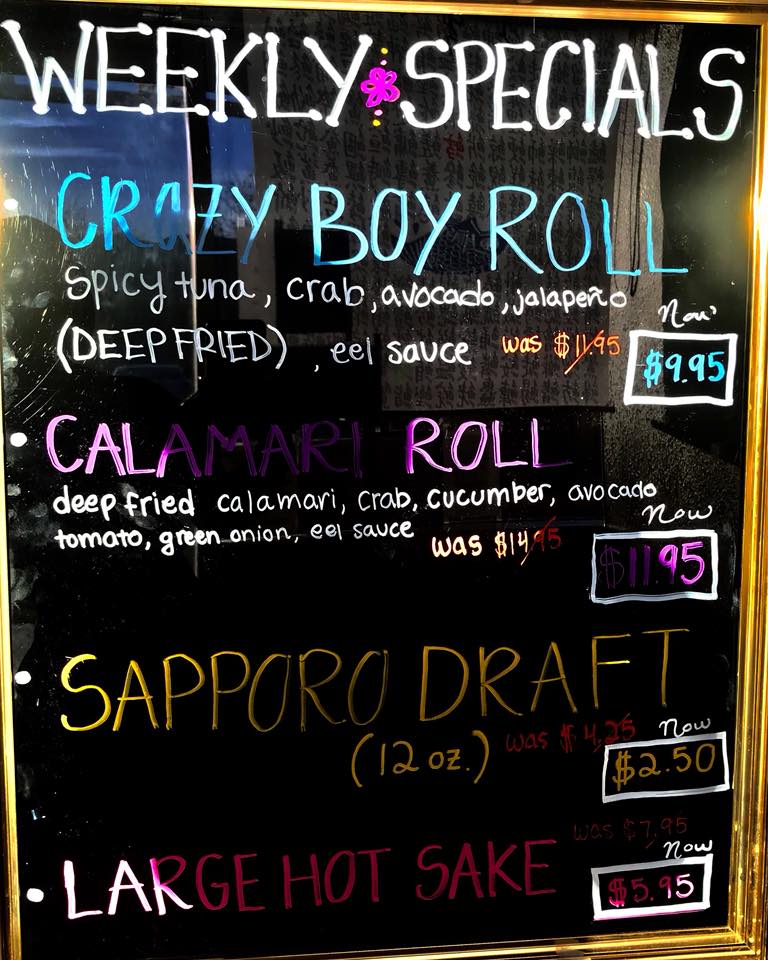 WEEKLY SPECIALS
CRAZY BOY ROLL
Spicy tuna, crab, avocado, jalapeño
(DEEP FRIED), eel sauce was $11.95 Now
$9.95
CALAMARI ROLL
deep fried calamari, crab, cucumber, avocado
tomato, green onion, eel sauce was $14.95 Now
$11.95
SAPPORO DRAFT
(12 oz.) was $4.25 Now
$2.50
LARGE HOT SAKE was $7.95 Now
$5.95